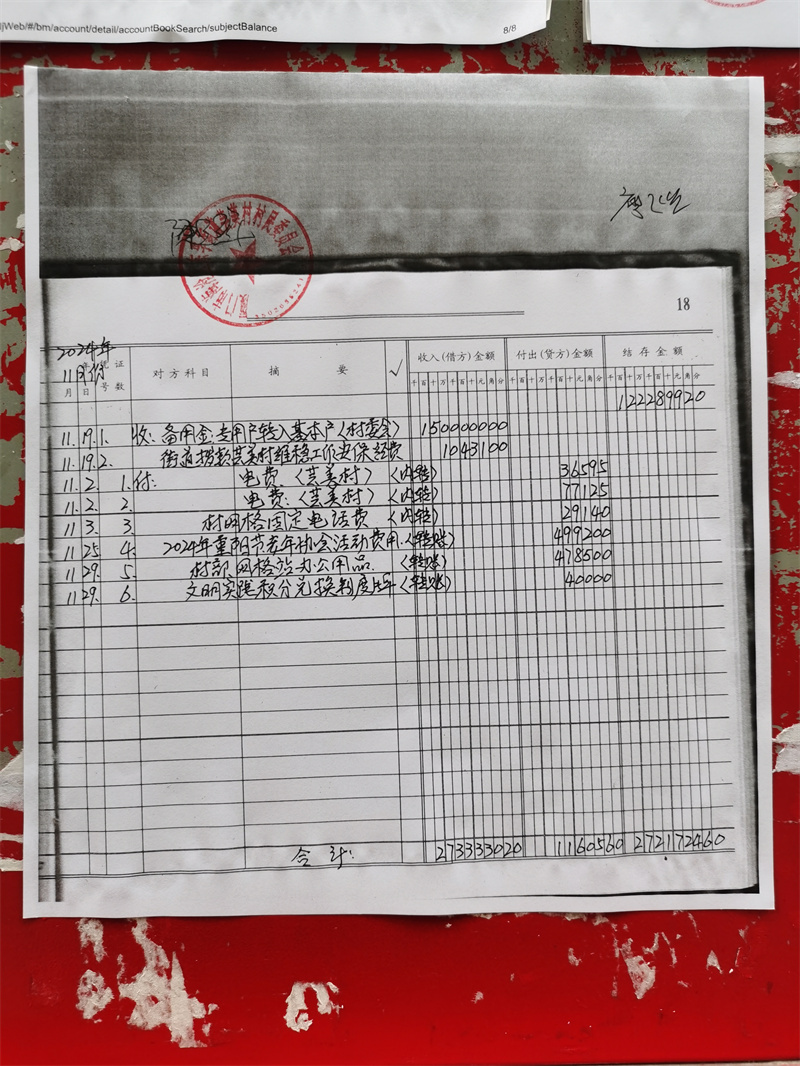 jWeb/#/bm/account/detail/accountBookSearch/subjectBalance 8/8
村村民委员会
18
2024年
11月份
月 日 号数 对方科目 摘要 √ 收入(借方)金额 付出(贷方)金额 结存金额
千百十万千百十元角分 千百十万千百十元角分 千百十万千百十元角分
122289920
11.19.1. 收: 备用金:专用户转入基本户〈村委会〉 150000000
11.19.2. 街道拨款芸美村维稳工作安保经费 1043100
11.2. 1. 付: 电费:〈芸美村〉〈内转〉 36595
11.2. 2. 电费:〈芸美村〉〈内转〉 77125
11.3. 3 村网格固定电话费.〈内转〉 29140
11.25. 4. 2024年重阳节老年协会活动费用.〈转账〉 499200
11.29. 5. 村部网格站办公用品.〈转账〉 478500
11.29. 6. 文明实践积分兑换制度牌〈转账〉 40000
合计: 273333020 1160560 272172460